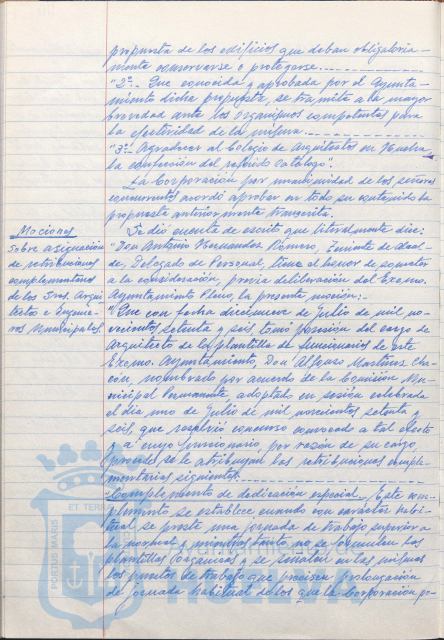 propuesta de los edificios que deban obligatoria-
mente conservarse o protegerse.
"2º.- Que conocida y aprobada por el Ayunta-
miento dicha propuesta, se tramite a la mayor
brevedad ante los Organismos competentes para
la efectividad de la misma.
"3º.- Agradecer al Colegio de Arquitectos en Huelva
la confección del referido Catálogo".
La Corporación por unanimidad de los señores
concurrentes acordó aprobar en todo su contenido la
propuesta anteriormente transcrita.
Mociones
Sobre asignación
de retribuciones
complementarias
de los Sres. Arqui
tectos e Ingenie-
ros Municipales
Se dió cuenta de escrito que literalmente dice:
"Don Antonio Hernandez Romero, Teniente de Alcal-
de, Delegado de Personal, tiene el honor de someter
a la consideración, previa deliberación del Excmo.
Ayuntamiento Pleno, la presente moción:-
"Que con fecha diecinueve de Julio de mil no-
vecientos setenta y seis, tomó posesión del cargo de
Arquitecto de la plantilla de funcionarios de este
Excmo. Ayuntamiento, Don Alfaro Martínez Cha-
cón, nombrado por acuerdo de la Comisión Mu-
nicipal Permanente, adoptado en sesión celebrada
el día uno de Julio de mil novecientos setenta y
seis, que resolvió concurso convocado a tal efecto
y a cuyo funcionario, por razón de su cargo,
procede se le atribuyan las retribuciones comple-
mentarias siguientes:
"Complemento de dedicación especial.- Este com-
plemento se establece cuando con carácter habi-
tual se preste una jornada de trabajo superior a
la normal y mientras tanto no se formulen las
plantillas orgánicas y se señalen en las mismas
los puestos de trabajo que precisen prolongación
de jornada habitual de los que la Corporación po-
PORTUS MARIS
ET TERRAE
Ayuntamiento de
HUELVA